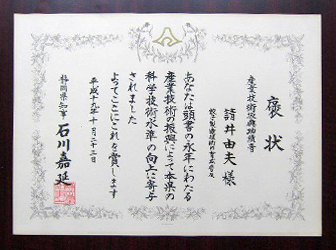 褒状
産業技術振興功績者
筒井由夫様
あなたは頭書の永年にわたる
産業技術の振興によって本県の
科学技術水準の向上に寄与
されました
よってここにこれを賞します
平成十九年十月二十三日
静岡県知事 石川嘉延